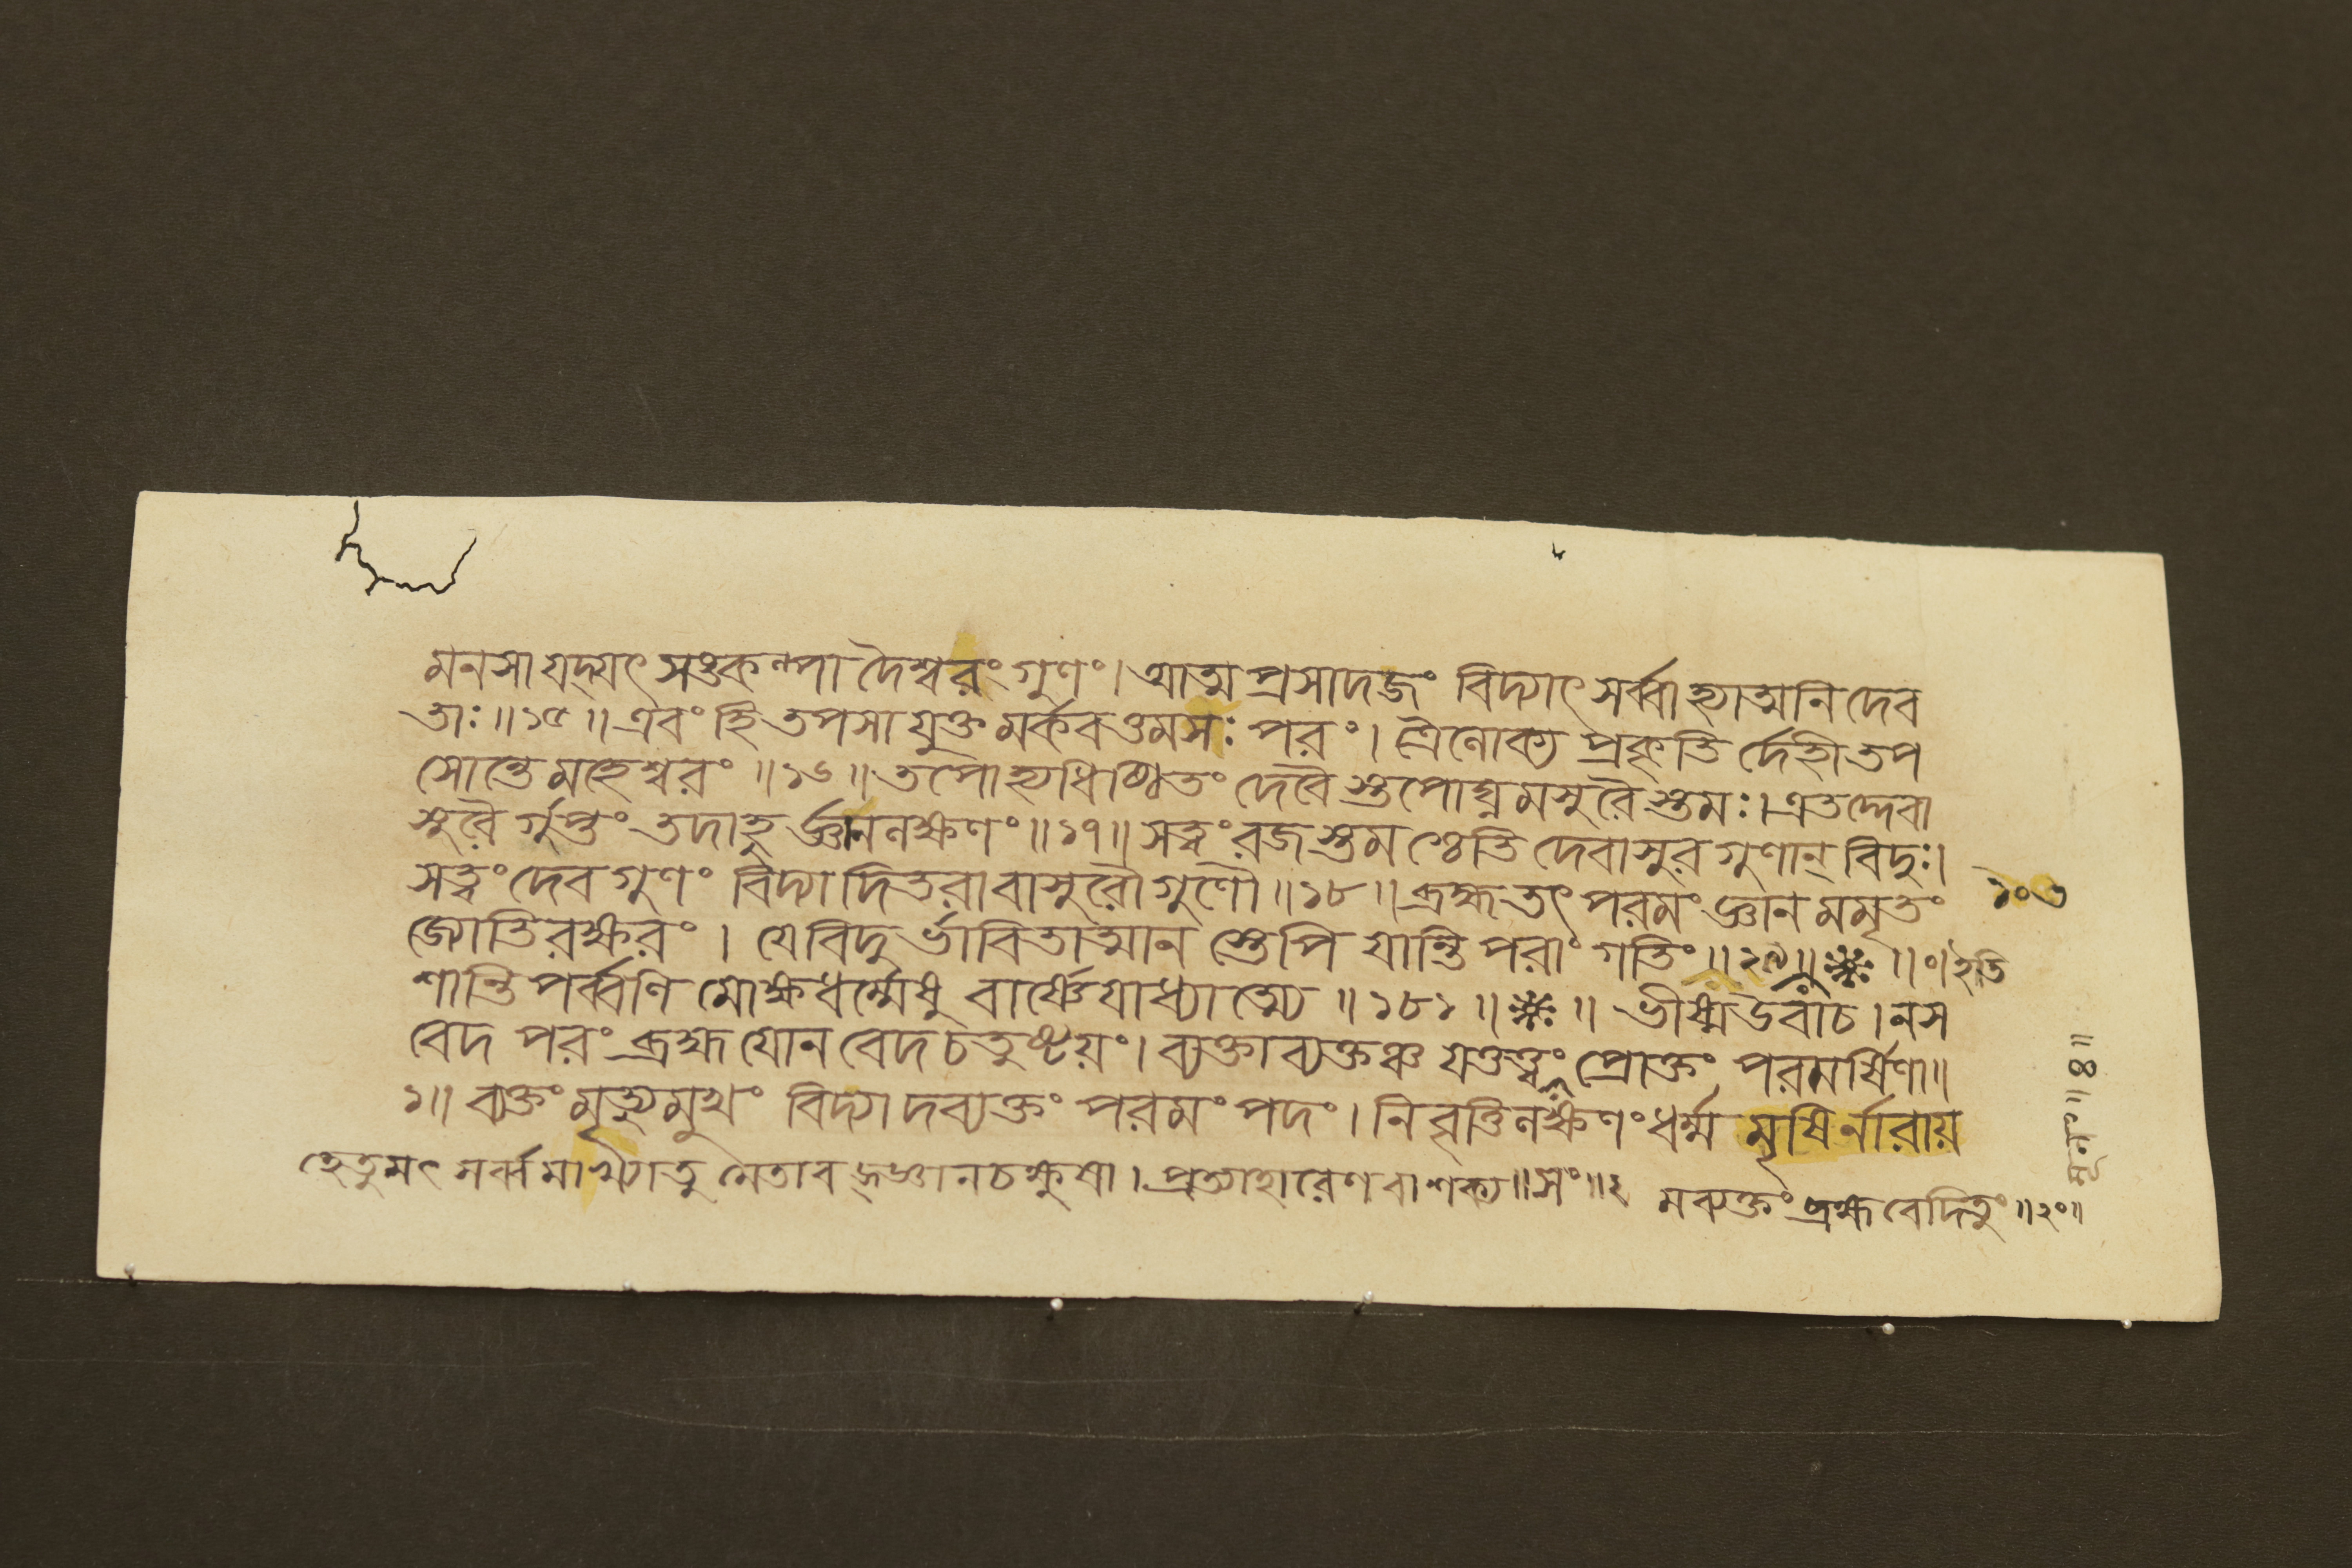 মনসা যদ্যৎ সঙকল্পা দৈশ্বরং গুণং। আত্ম প্রসাদজং বিদ্যাৎ সর্ব্বাহ্যাত্মনি দেব
তাঃ ॥১৫॥ এবং হি তপসা যুক্ত মর্কবত্তমসঃ পরং। ত্রৈলোক্য প্রকৃতি র্দেহী তপ
সোন্তে মহেশ্বরং ॥১৬॥ তপোহ্যধিষ্ঠিতং দেবৈ স্তপোঘ্নমসুরৈ স্তমঃ। এতদ্দেবা
সুরৈ র্গুপ্তং তদাহু র্জ্ঞানলক্ষণং ॥১৭॥ সত্ত্বং রজ স্তম শ্চেতি দেবাসুর গুণান্ বিদুঃ।
সত্ত্বং দেব গুণং বিদ্যা দিতরাবাসুরৌ গুণৌ ॥১৮॥ ব্রহ্ম তৎ পরমং জ্ঞান মমৃতং
জ্যোতিরক্ষরং। যে বিদু র্ভাবিতাত্মান স্তেপি যান্তি পরাং গতিং ॥ ॥ ॥ ইতি
শান্তি পর্ব্বণি মোক্ষধর্ম্মেষু বার্ষ্ণেযাধ্যাত্ম্যে ॥১৮১॥ ॥ ভীষ্ম উবাচ। ন স
বেদ পরং ব্রহ্ম যো ন বেদ চতুষ্টয়ং। ব্যক্তাব্যক্তঞ্চ যত্তত্ত্বং প্রোক্তং পরমর্ষিণা॥
১॥ ব্যক্তং মৃত্যুমুখং বিদ্যা দব্যক্তং পরমং পদং। নিবৃত্তিলক্ষণং ধর্ম্ম মৃষি র্নারায়
হেতুমৎ সর্ব্বমাখ্যাতু মেতাব জ্জ্ঞানচক্ষুষা। প্রত্যাহারেণ বা শক্য ॥সং॥২ মব্যক্তং ব্রহ্ম বেদিতুং ॥২০॥
১০৩